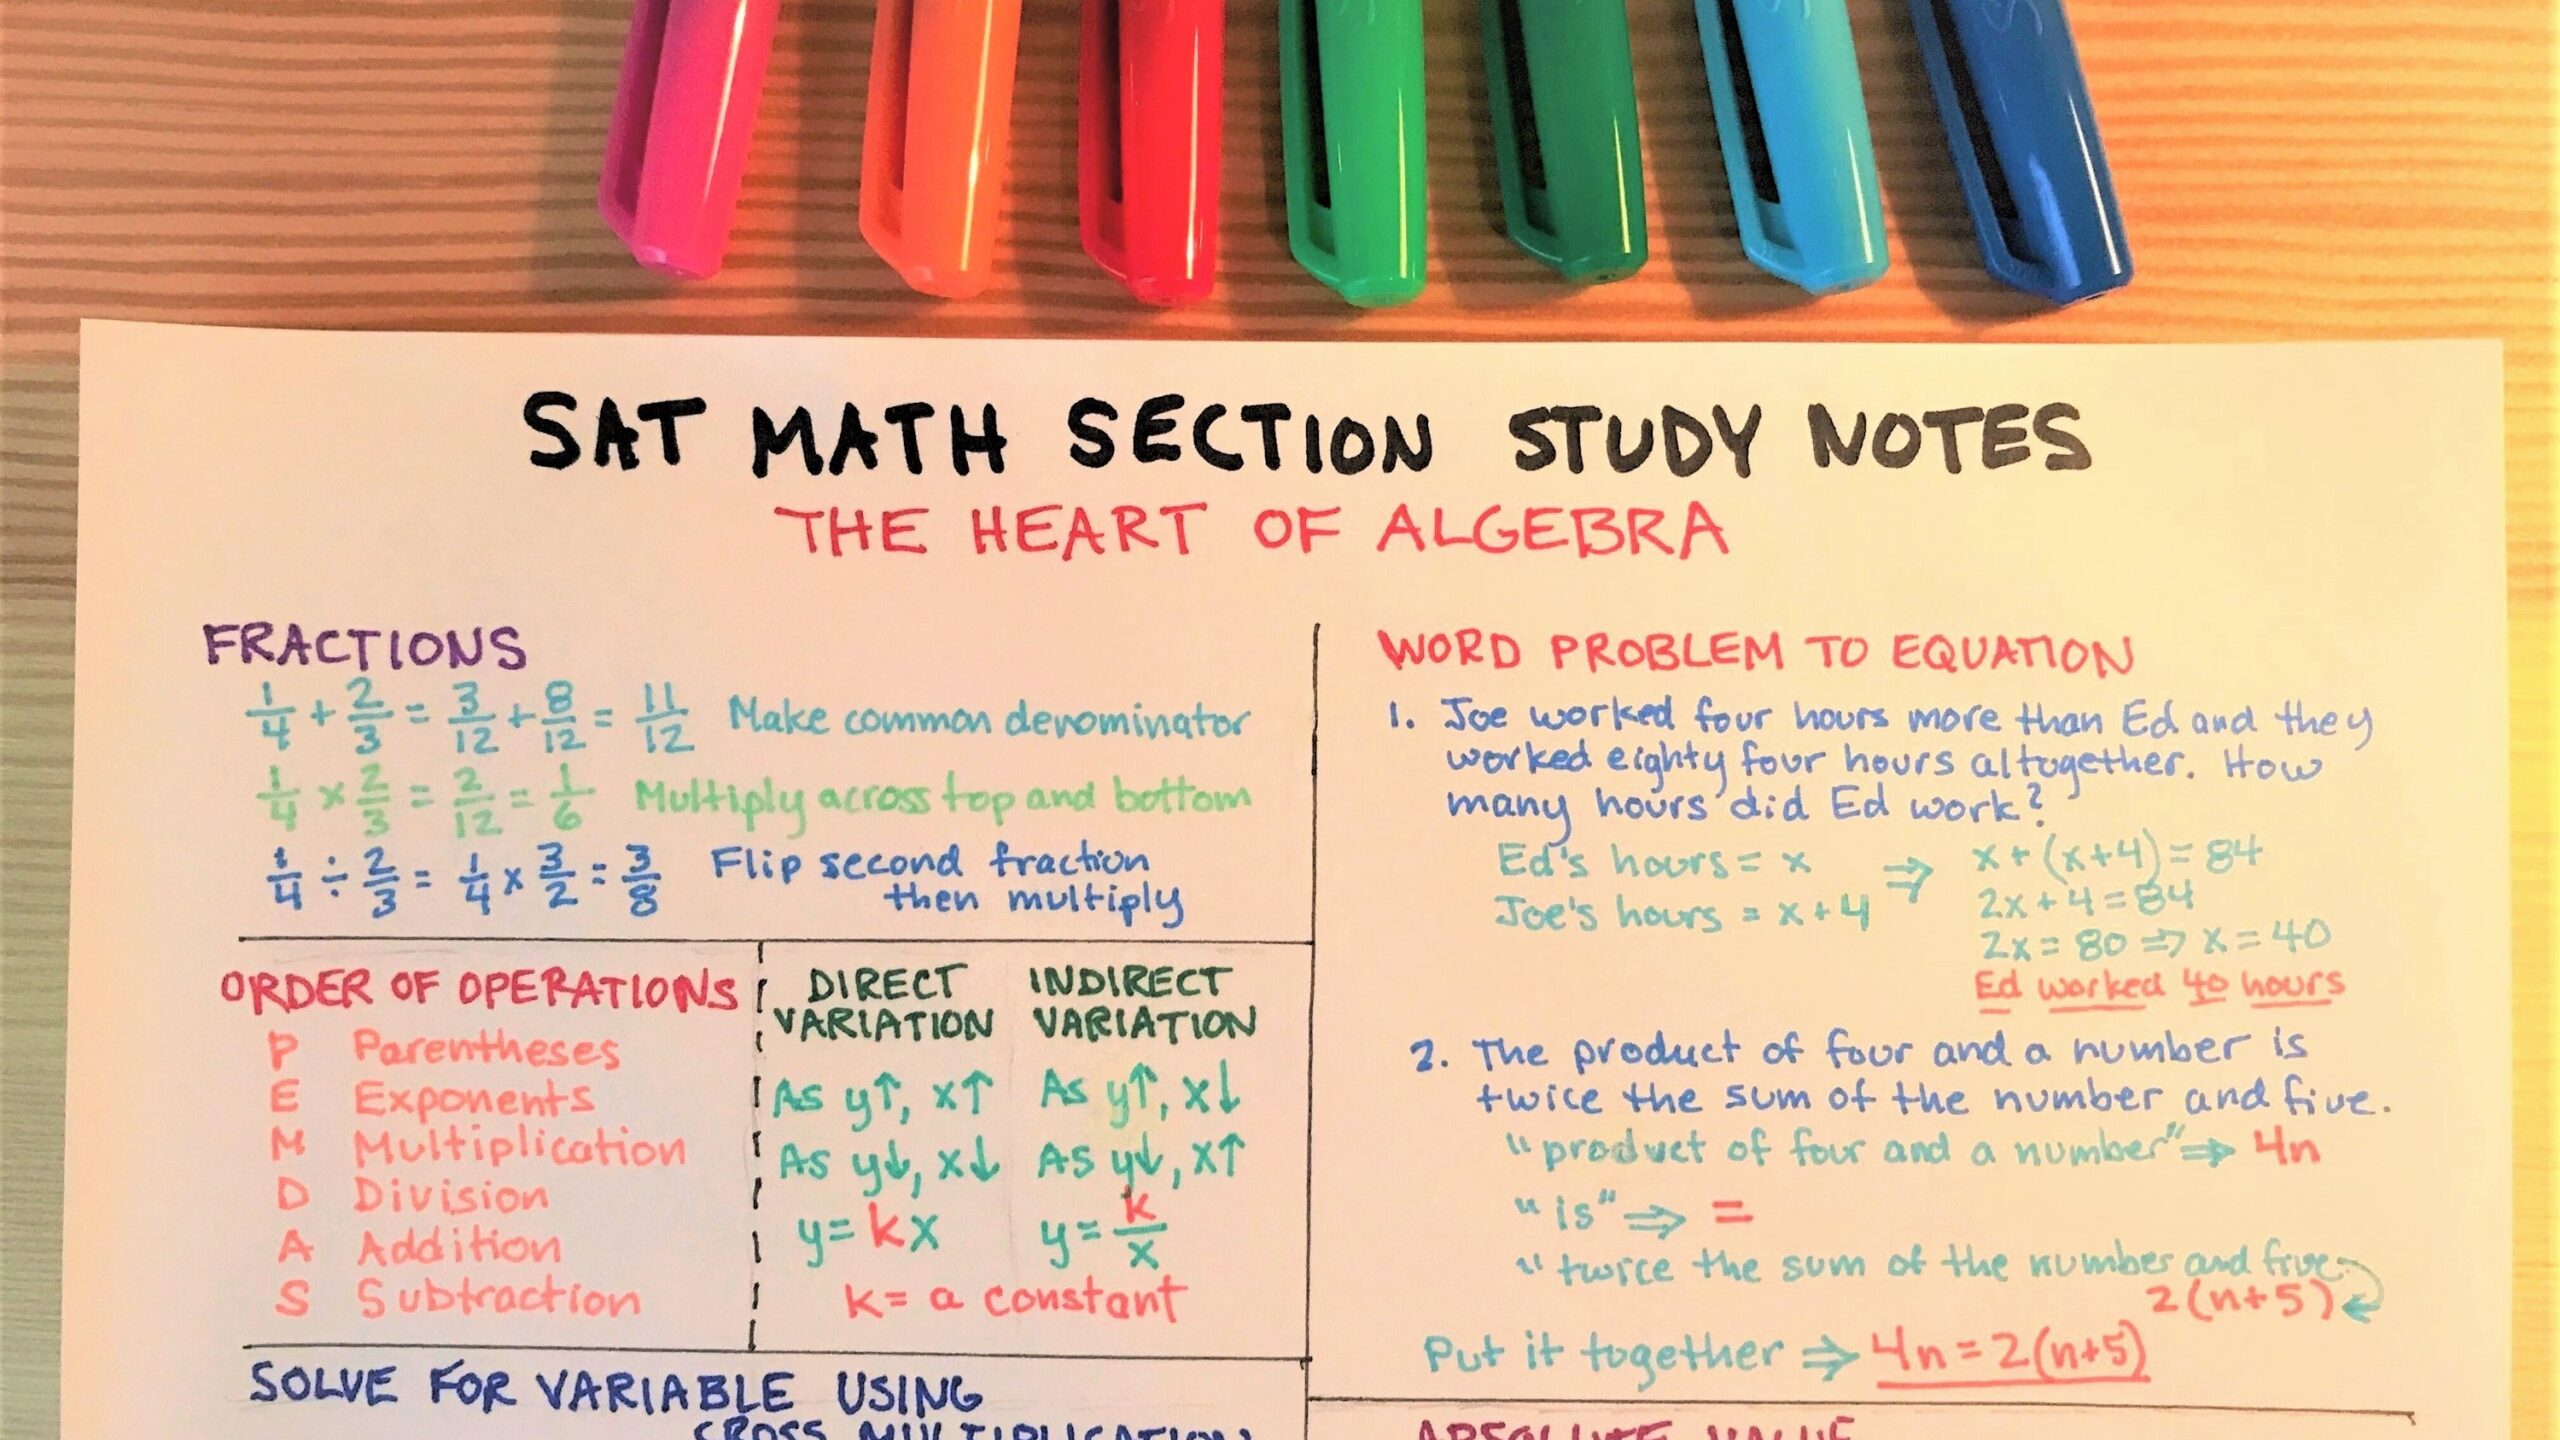 SAT MATH SECTION STUDY NOTES
THE HEART OF ALGEBRA
FRACTIONS
1/4 + 2/3 = 3/12 + 8/12 = 11/12 Make common denominator
1/4 × 2/3 = 2/12 = 1/6 Multiply across top and bottom
1/4 ÷ 2/3 = 1/4 × 3/2 = 3/8 Flip second fraction
then multiply
ORDER OF OPERATIONS
P Parentheses
E Exponents
M Multiplication
D Division
A Addition
S Subtraction
DIRECT
VARIATION
As y↑, x↑
As y↓, x↓
y = kx
INDIRECT
VARIATION
As y↑, x↓
As y↓, x↑
y = k/x
k = a constant
SOLVE FOR VARIABLE USING
CROSS MULTIPLICATION
WORD PROBLEM TO EQUATION
1. Joe worked four hours more than Ed and they
worked eighty four hours altogether. How
many hours did Ed work?
Ed's hours = x
Joe's hours = x + 4
⇒
x + (x+4) = 84
2x + 4 = 84
2x = 80 ⇒ x = 40
Ed worked 40 hours
2. The product of four and a number is
twice the sum of the number and five.
"product of four and a number" ⇒ 4n
"is" ⇒ =
"twice the sum of the number and five
2(n+5)
Put it together ⇒ 4n = 2(n+5)
ABSOLUTE VALUE